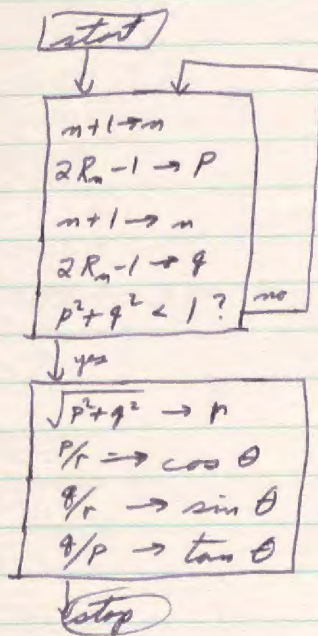 start
n+1→n
2Rₙ-1 → p
n+1 → n
2Rₙ-1 → q
p²+q² < 1 ? no
yes
√p²+q² → r
p/r → cos θ
q/r → sin θ
q/p → tan θ
stop